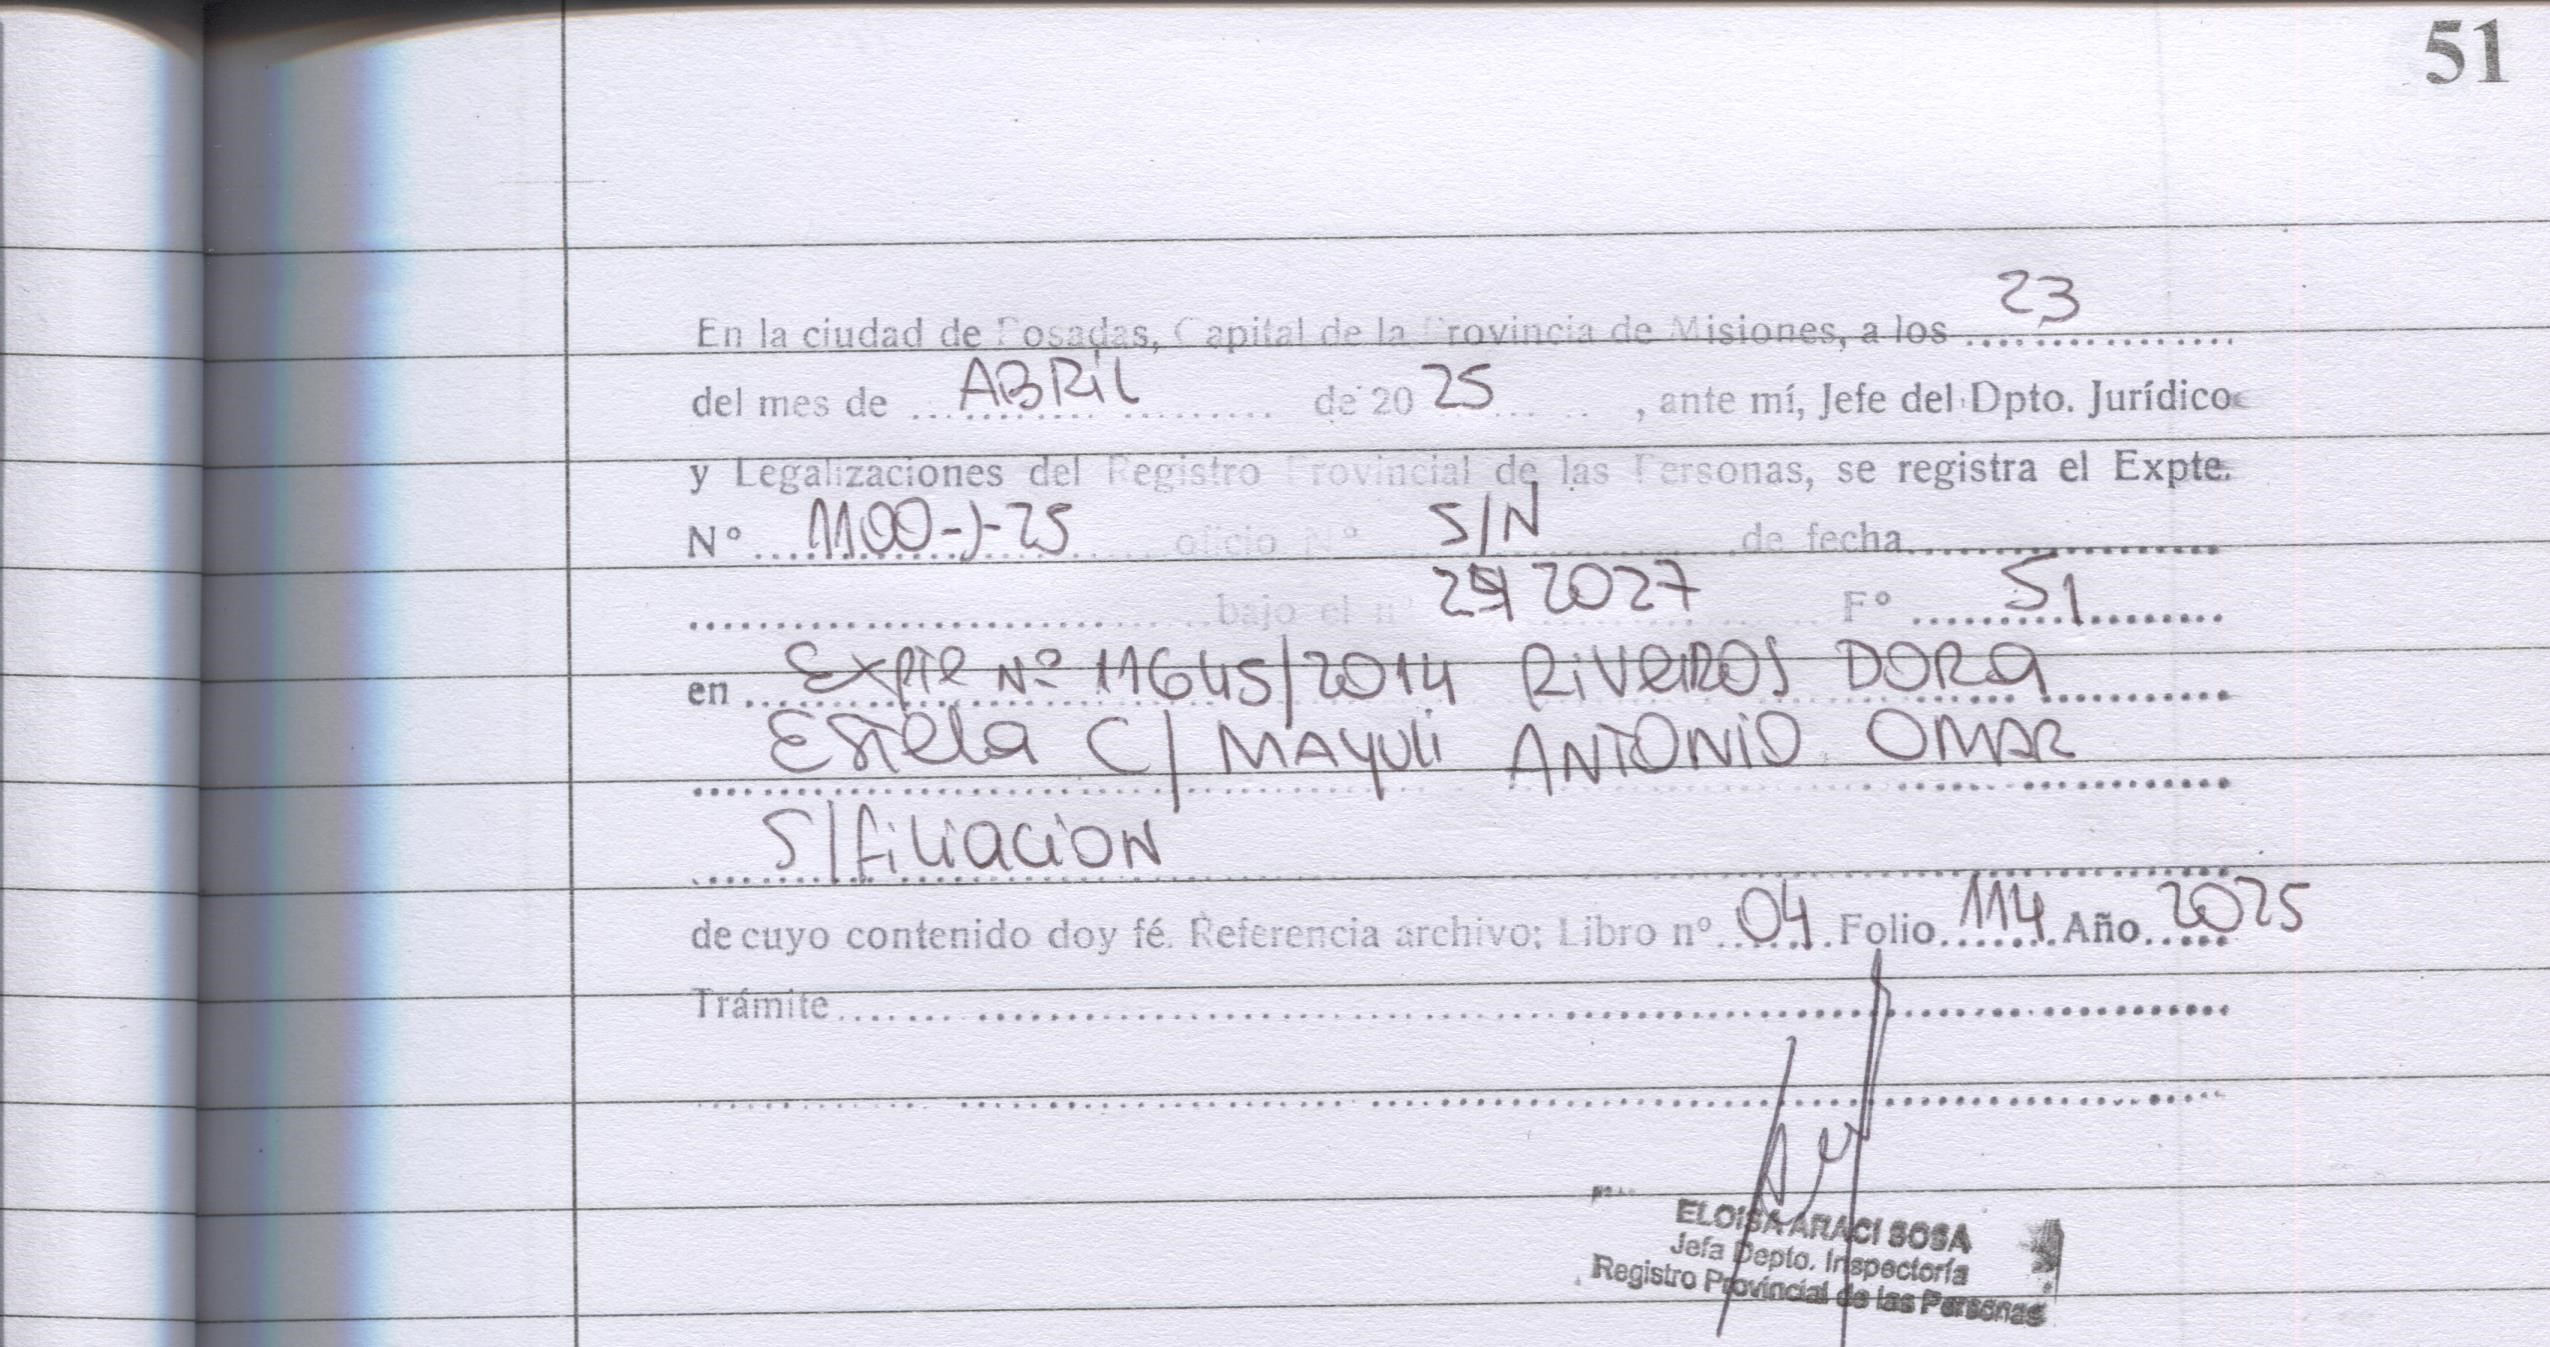 51
En la ciudad de Posadas, Capital de la Provincia de Misiones, a los 23
del mes de ABRil de 20 25 , ante mí, Jefe del Dpto. Jurídico
y Legalizaciones del Registro Provincial de las Personas, se registra el Expte.
Nº 1100-J-25 oficio Nº S/N de fecha
bajo el nº 2027 Fº 51
en Expte Nº 11645/2014 RiVeROS DORa
Estela C/ MAYuli ANTONiO OMAR
S/filiaciON
de cuyo contenido doy fé. Referencia archivo: Libro nº 04 Folio 114 Año 2025
Trámite
ELOISA ARACI SOSA
Jefa Depto. Inspectoría
Registro Provincial de las Personas